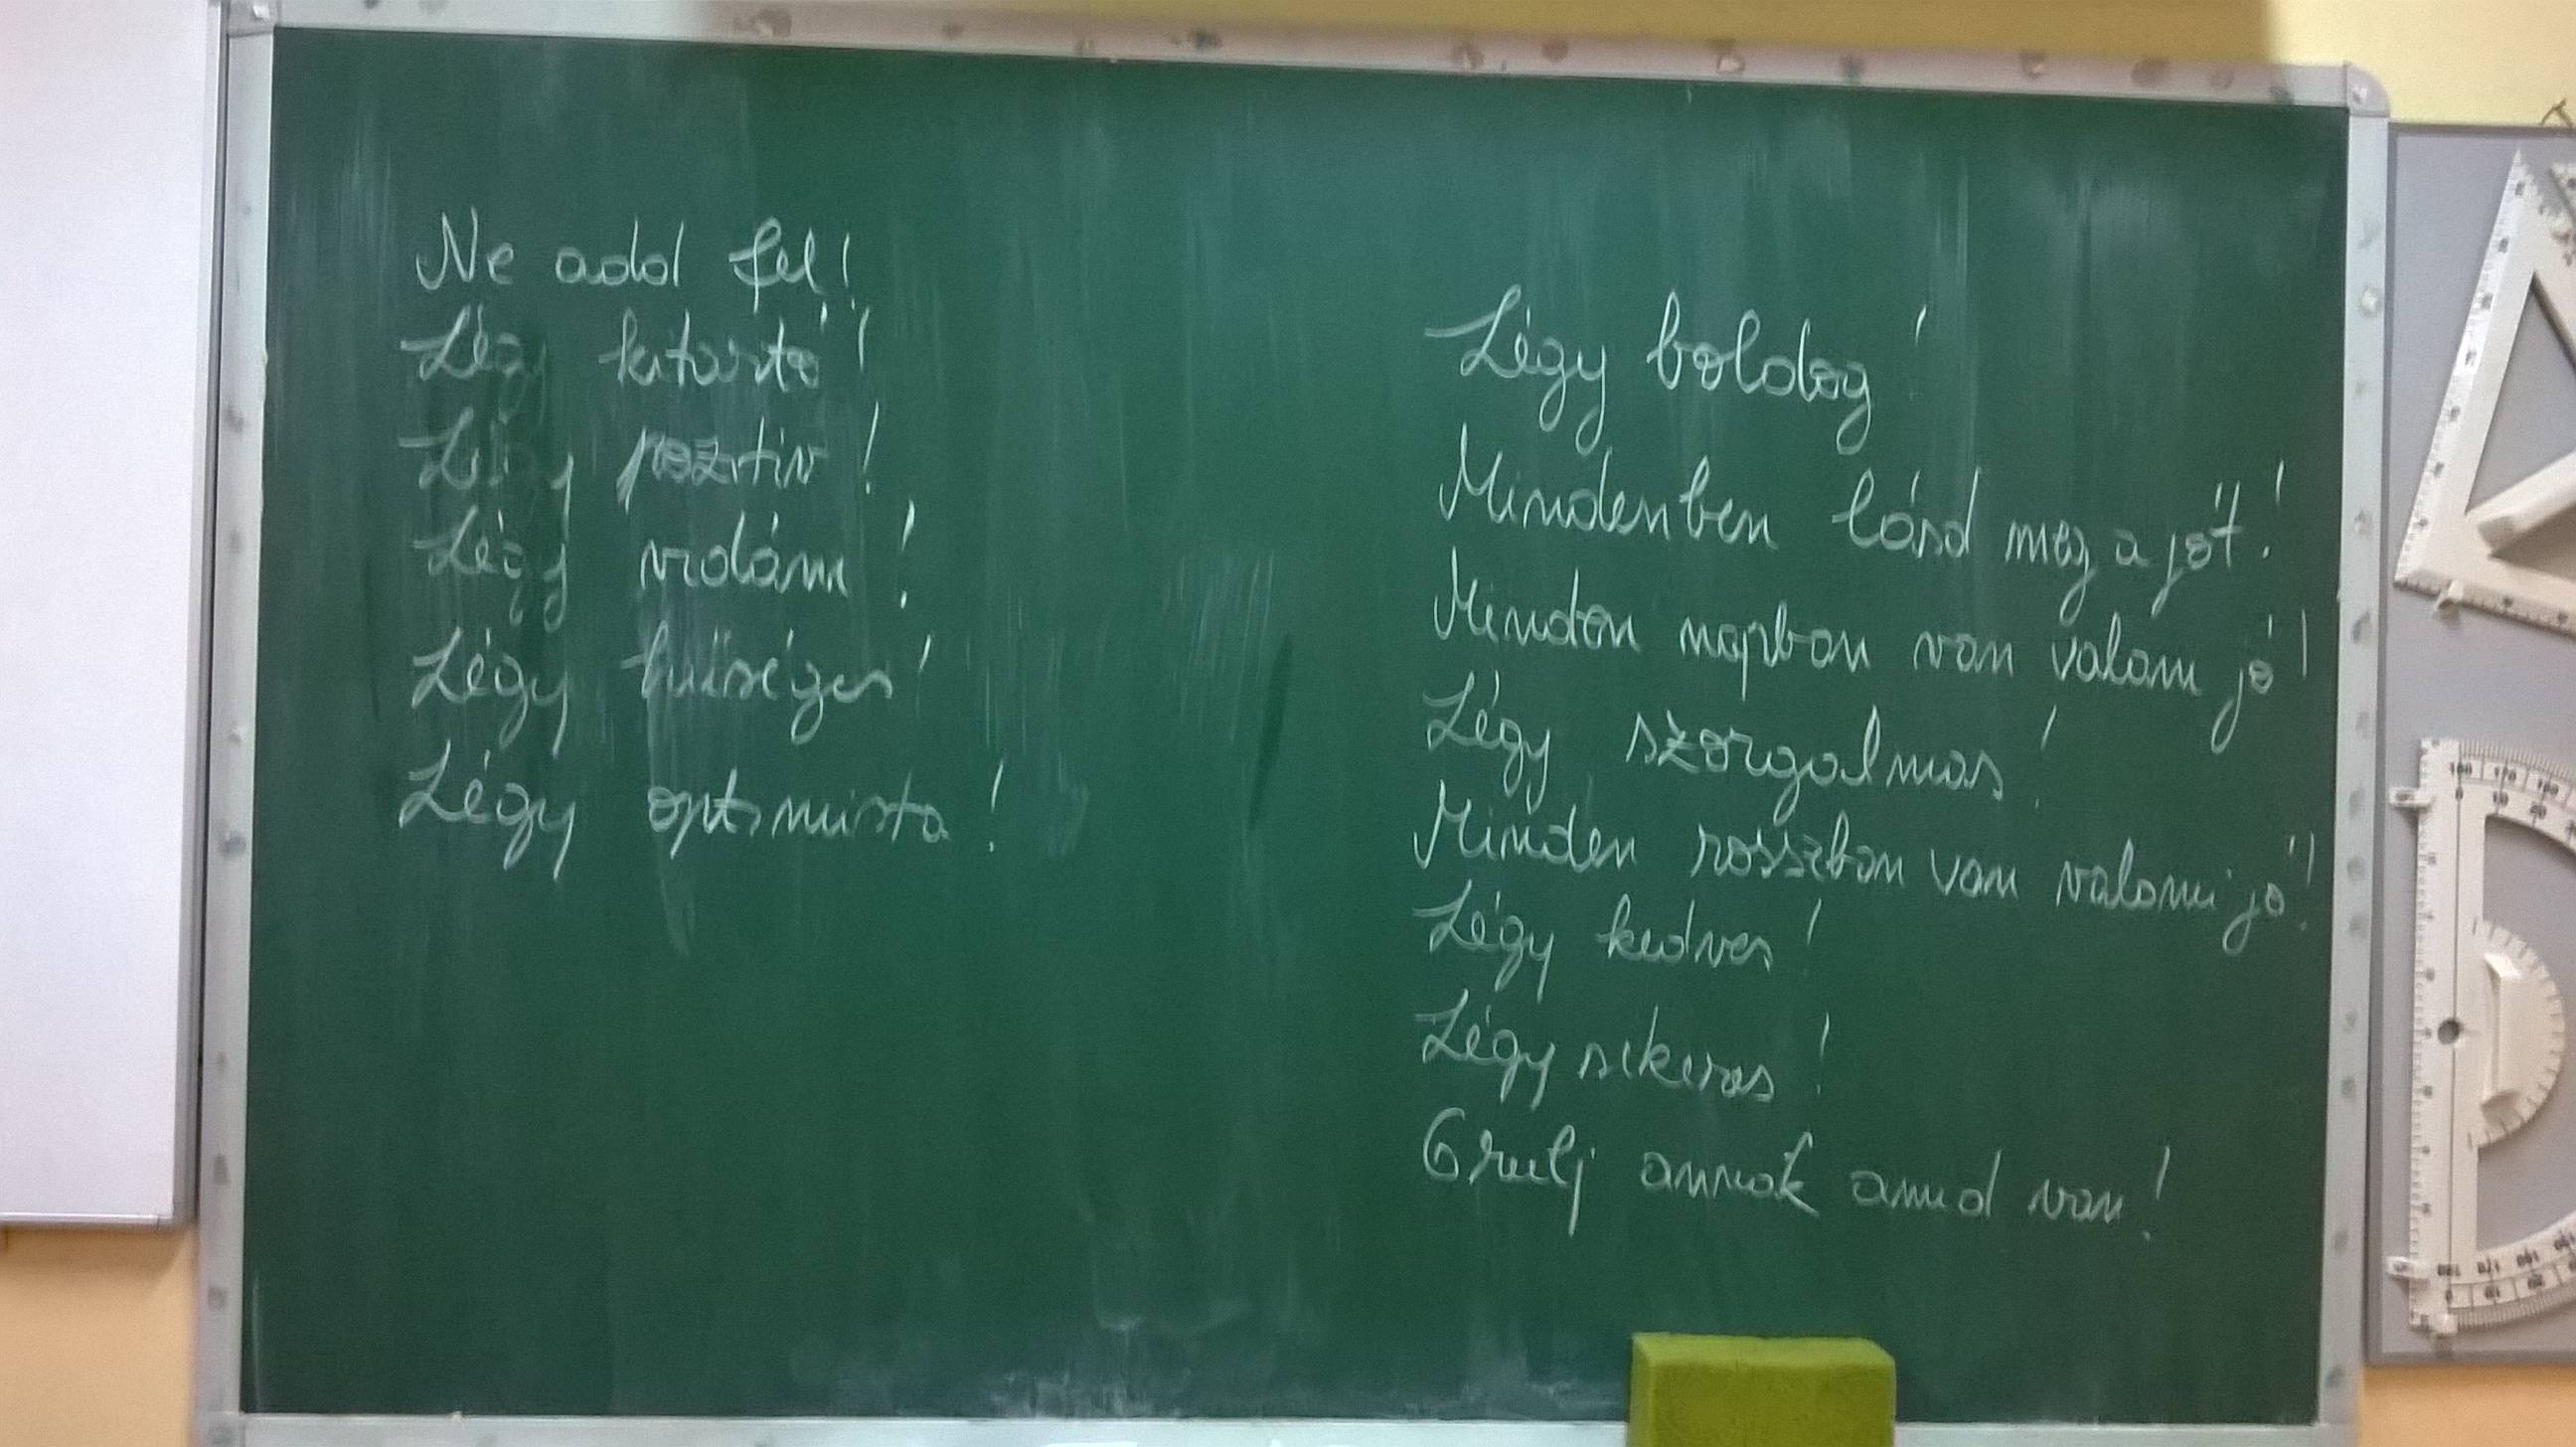 Ne add fel!
Légy kitartó!
Légy pozitív!
Légy vidám!
Légy hűséges!
Légy optimista!
Légy boldog!
Mindenben lásd meg a jót!
Minden napban van valami jó!
Légy szorgalmas!
Minden rosszban van valami jó!
Légy kedves!
Légy sikeres!
Örülj annak amid van!